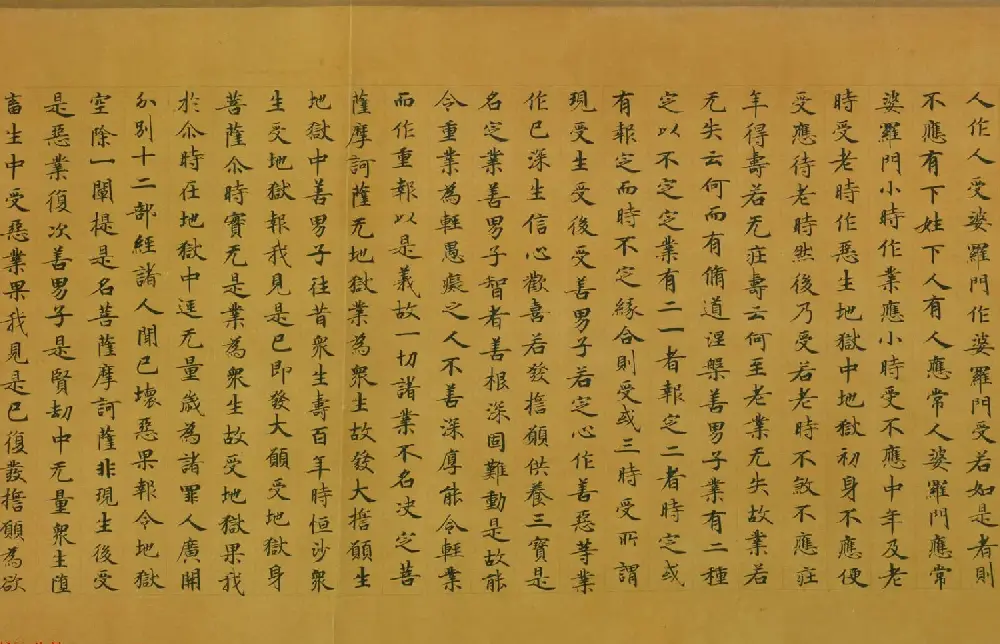 人作人受婆羅門作婆羅門受若如是者則
不應有下姓下人有人應常人婆羅門應常
婆羅門小時作業應小時受不應中年及老
時受老時作惡生地獄中地獄初身不應便
受應待老時然後乃受若老時不煞不應莊
年得壽若无莊壽云何至老業无失故業若
无失云何而有脩道涅槃善男子業有二種
定以不定定業有二一者報定二者時定或
有報定而時不定緣合則受或三時受所謂
現受生受後受善男子若定心作善惡等業
作已深生信心歡喜若發擔願供養三寶是
名定業善男子智者善根深固難動是故能
令重業為輕愚癡之人不善深厚能令輕業
而作重報以是義故一切諸業不名決定菩
薩摩訶薩无地獄業為衆生故發大擔願生
地獄中善男子往昔衆生壽百年時恒沙衆
生受地獄報我見是已即發大願受地獄身
菩薩尒時實无是業為衆生故受地獄果我
於尒時在地獄中逕无量歲為諸罪人廣開
分別十二部經諸人聞已壞惡果報令地獄
空除一闡提是名菩薩摩訶薩非現生後受
是惡業復次善男子是賢劫中无量衆生堕
畜生中受惡業果我見是已復發擔願為欲